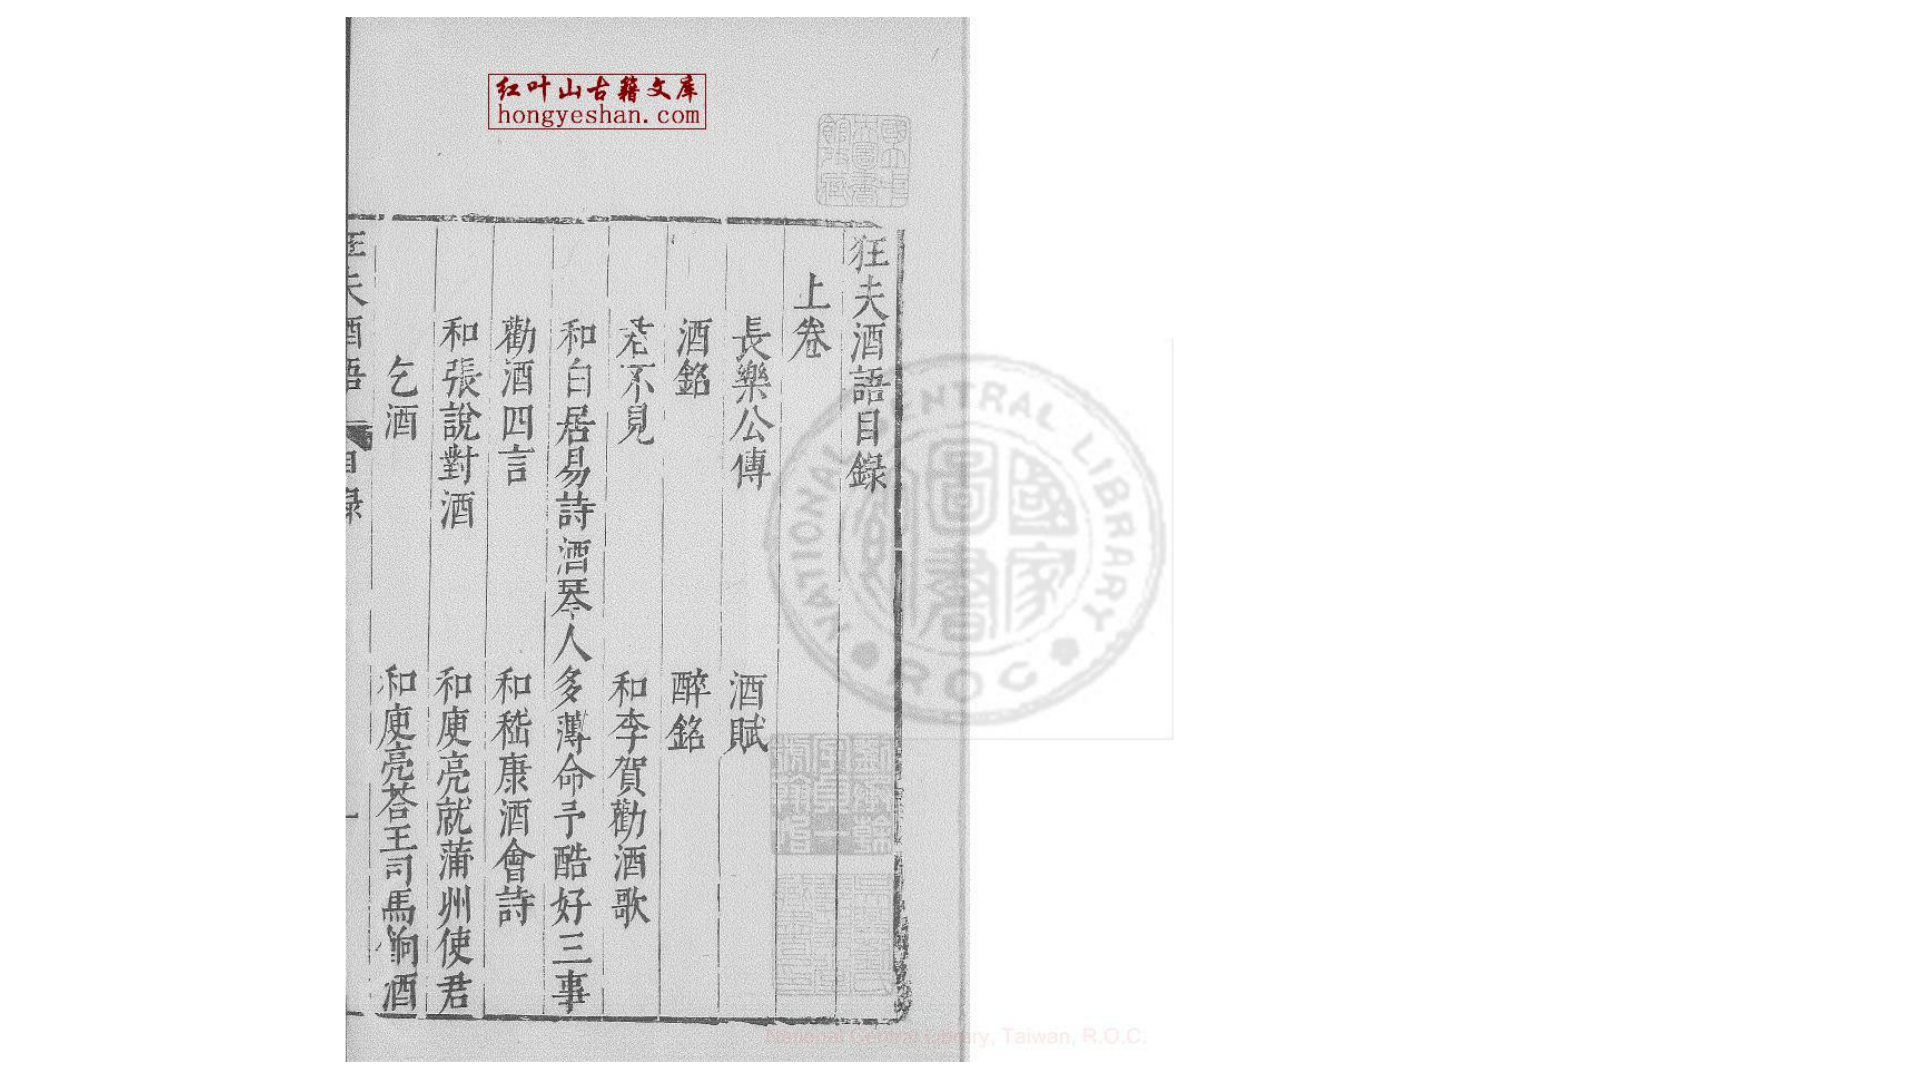 红叶山古籍文库
hongyeshan.com
狂夫酒語目録
上卷
長樂公傳　酒賦
酒銘　醉銘
老不見　和李賀勸酒歌
和白居易詩酒琴人多薄命予酷好三事
勸酒四言　和嵇康酒會詩
和張說對酒　和庾亮就蒲州使君
乞酒　和庾亮荅王司馬餉酒
狂夫酒語　目録　一
NATIONAL CENTRAL LIBRARY
R O C
國家圖書館
National Central Library, Taiwan, R.O.C.